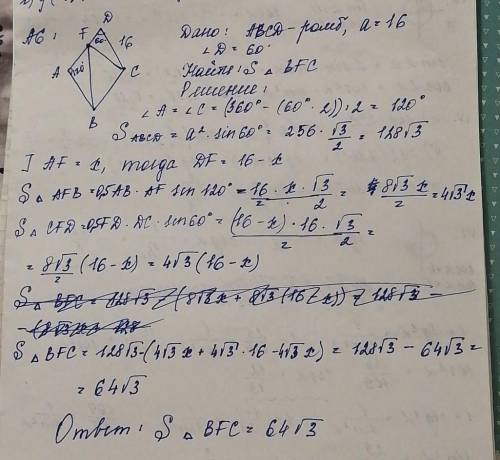 А6:
D
F
60°
16
A
120°
C
B
Дано: ABCD - ромб, a = 16
∠D = 60°
Найти: S △ BFC
Решение:
∠A = ∠C = (360° - (60° · 2)) : 2 = 120°
S ABCD = a² · sin 60° = 256 · √3/2 = 128√3
I AF = x, тогда DF = 16 - x
S △ AFB = 0,5 AB · AF sin 120° = (16 · x · √3)/(2 · 2) = 8√3 x/2 = 4√3 x
S △ CFD = 0,5 FD · DC · sin 60° = ((16 - x) · 16 · √3)/(2 · 2) =
= 8√3/2 (16 - x) = 4√3 (16 - x)
S △ BFC = 128√3 - (8√3 x + 8√3 (16 - x)) = 128√3 -
S △ BFC = 128√3 - (4√3 x + 4√3 · 16 - 4√3 x) = 128√3 - 64√3 =
= 64√3
Ответ: S △ BFC = 64√3